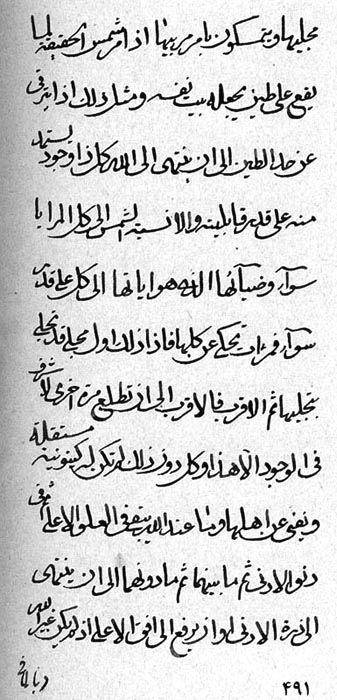 مجليها ويتمسكون بامر مربيها اذ امر شمس الحقيقة لما
يقع على طين يجعله بيت نفسه ومثل ذلك اذا يترقى
عن حد الطين الى ان ينتهى الى الله كل ذا وجود يستمد
منه على قدر قابليته والا نسبة الشمس الى كل المرايا
سواء وضيائها الذى هو اياتها الى كل على قدر
سواء فمرات تحكى عن كلها فاذا ذلك اول مجلى قد تجلى
بتجليها ثم الاقرب فالاقرب الى ان تطلع مرة اخرى لا شرف
فى الوجود الا هذا وكل دون ذلك لم تكن له كينونية مستقلة
ويفنى عن اهلها وما عند الله يبقى فى العلو الاعلى
دنو الادنى ثم ما بينهما ثم ما دونهما الى ان ينتهى
الى ذرة الادنى او ان يرفع الى افق الاعلى اذ لم يكن غير الله
٤٩١